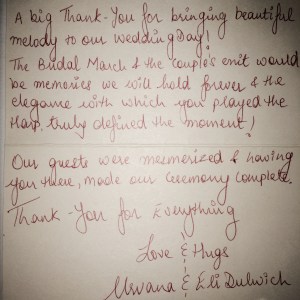 A big Thank-You for bringing beautiful
melody to our Wedding Day!
The Bridal March & the couple's exit would
be memories we will hold forever & the
elegance with which you played the
Harp, truly defined the moment!
Our guests were mesmerized & having
you there, made our Ceremony Complete.
Thank-You for Everything
Love & Hugs
& Eli Dulwich